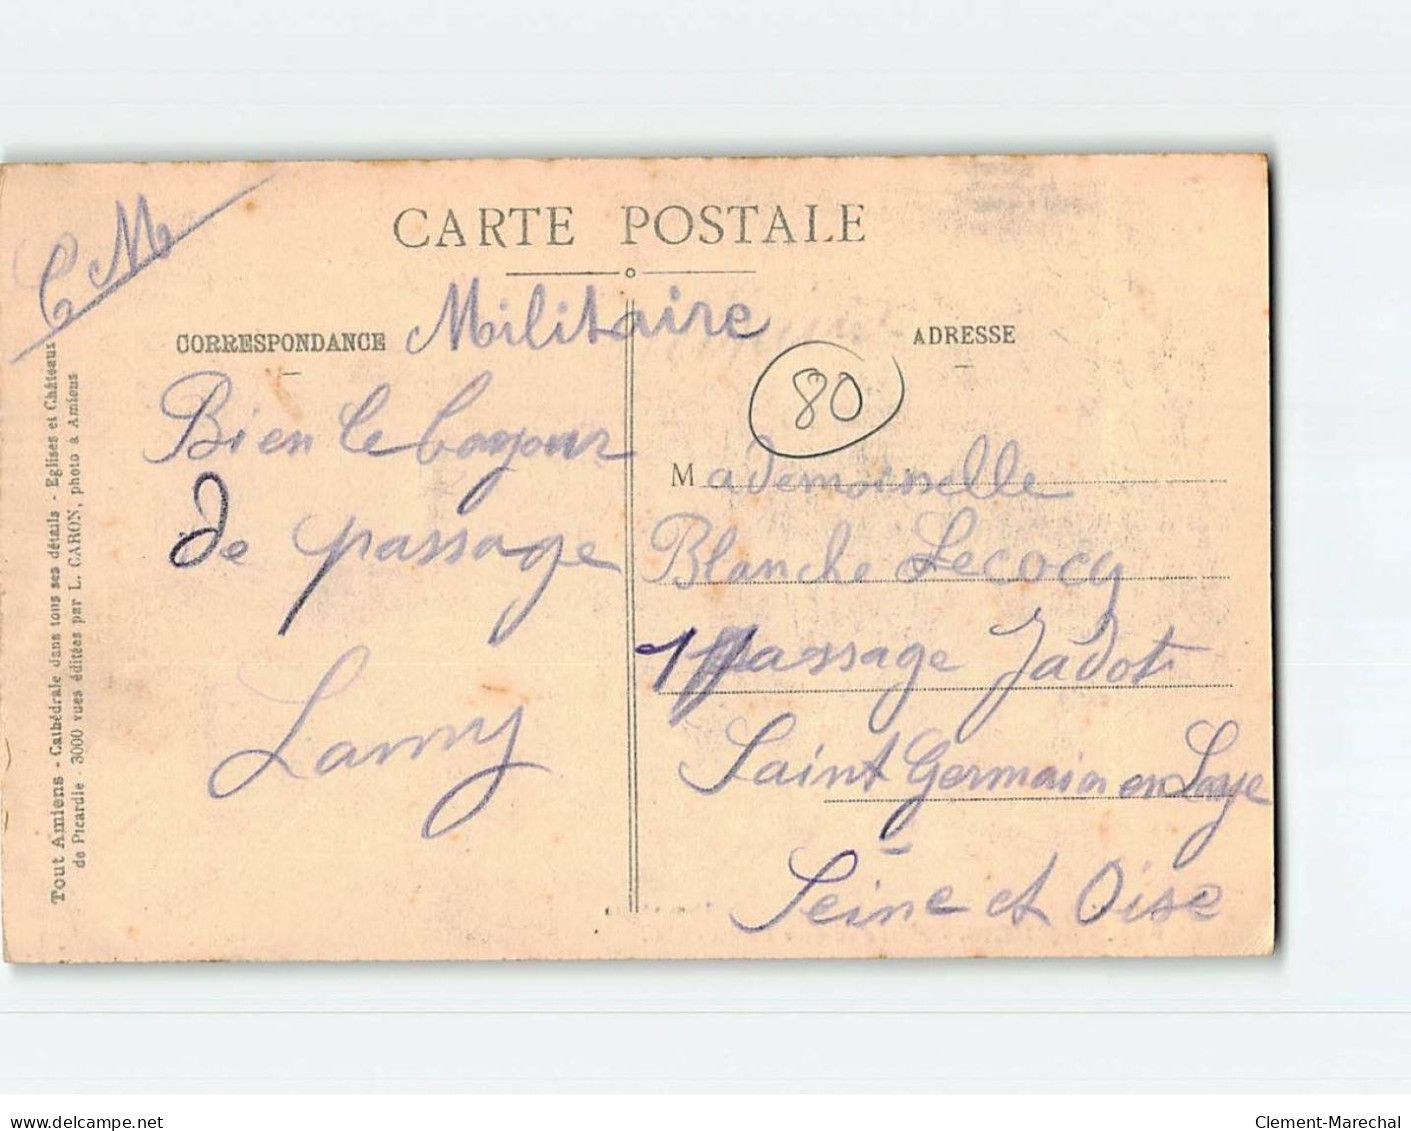 C M
CARTE POSTALE
CORRESPONDANCE
Militaire
ADRESSE
80
Bien le bonjour
de passage
Lamy
Mademoiselle
Blanche Lecocq
1 passage Jadot
Saint Germain en Laye
Seine et Oise
Tout Amiens - Cathédrale dans tous ses détails - Eglises et Châteaux
de Picardie - 3000 vues éditées par L. CARON, photo à Amiens
www.delcampe.net
Clement-Marechal